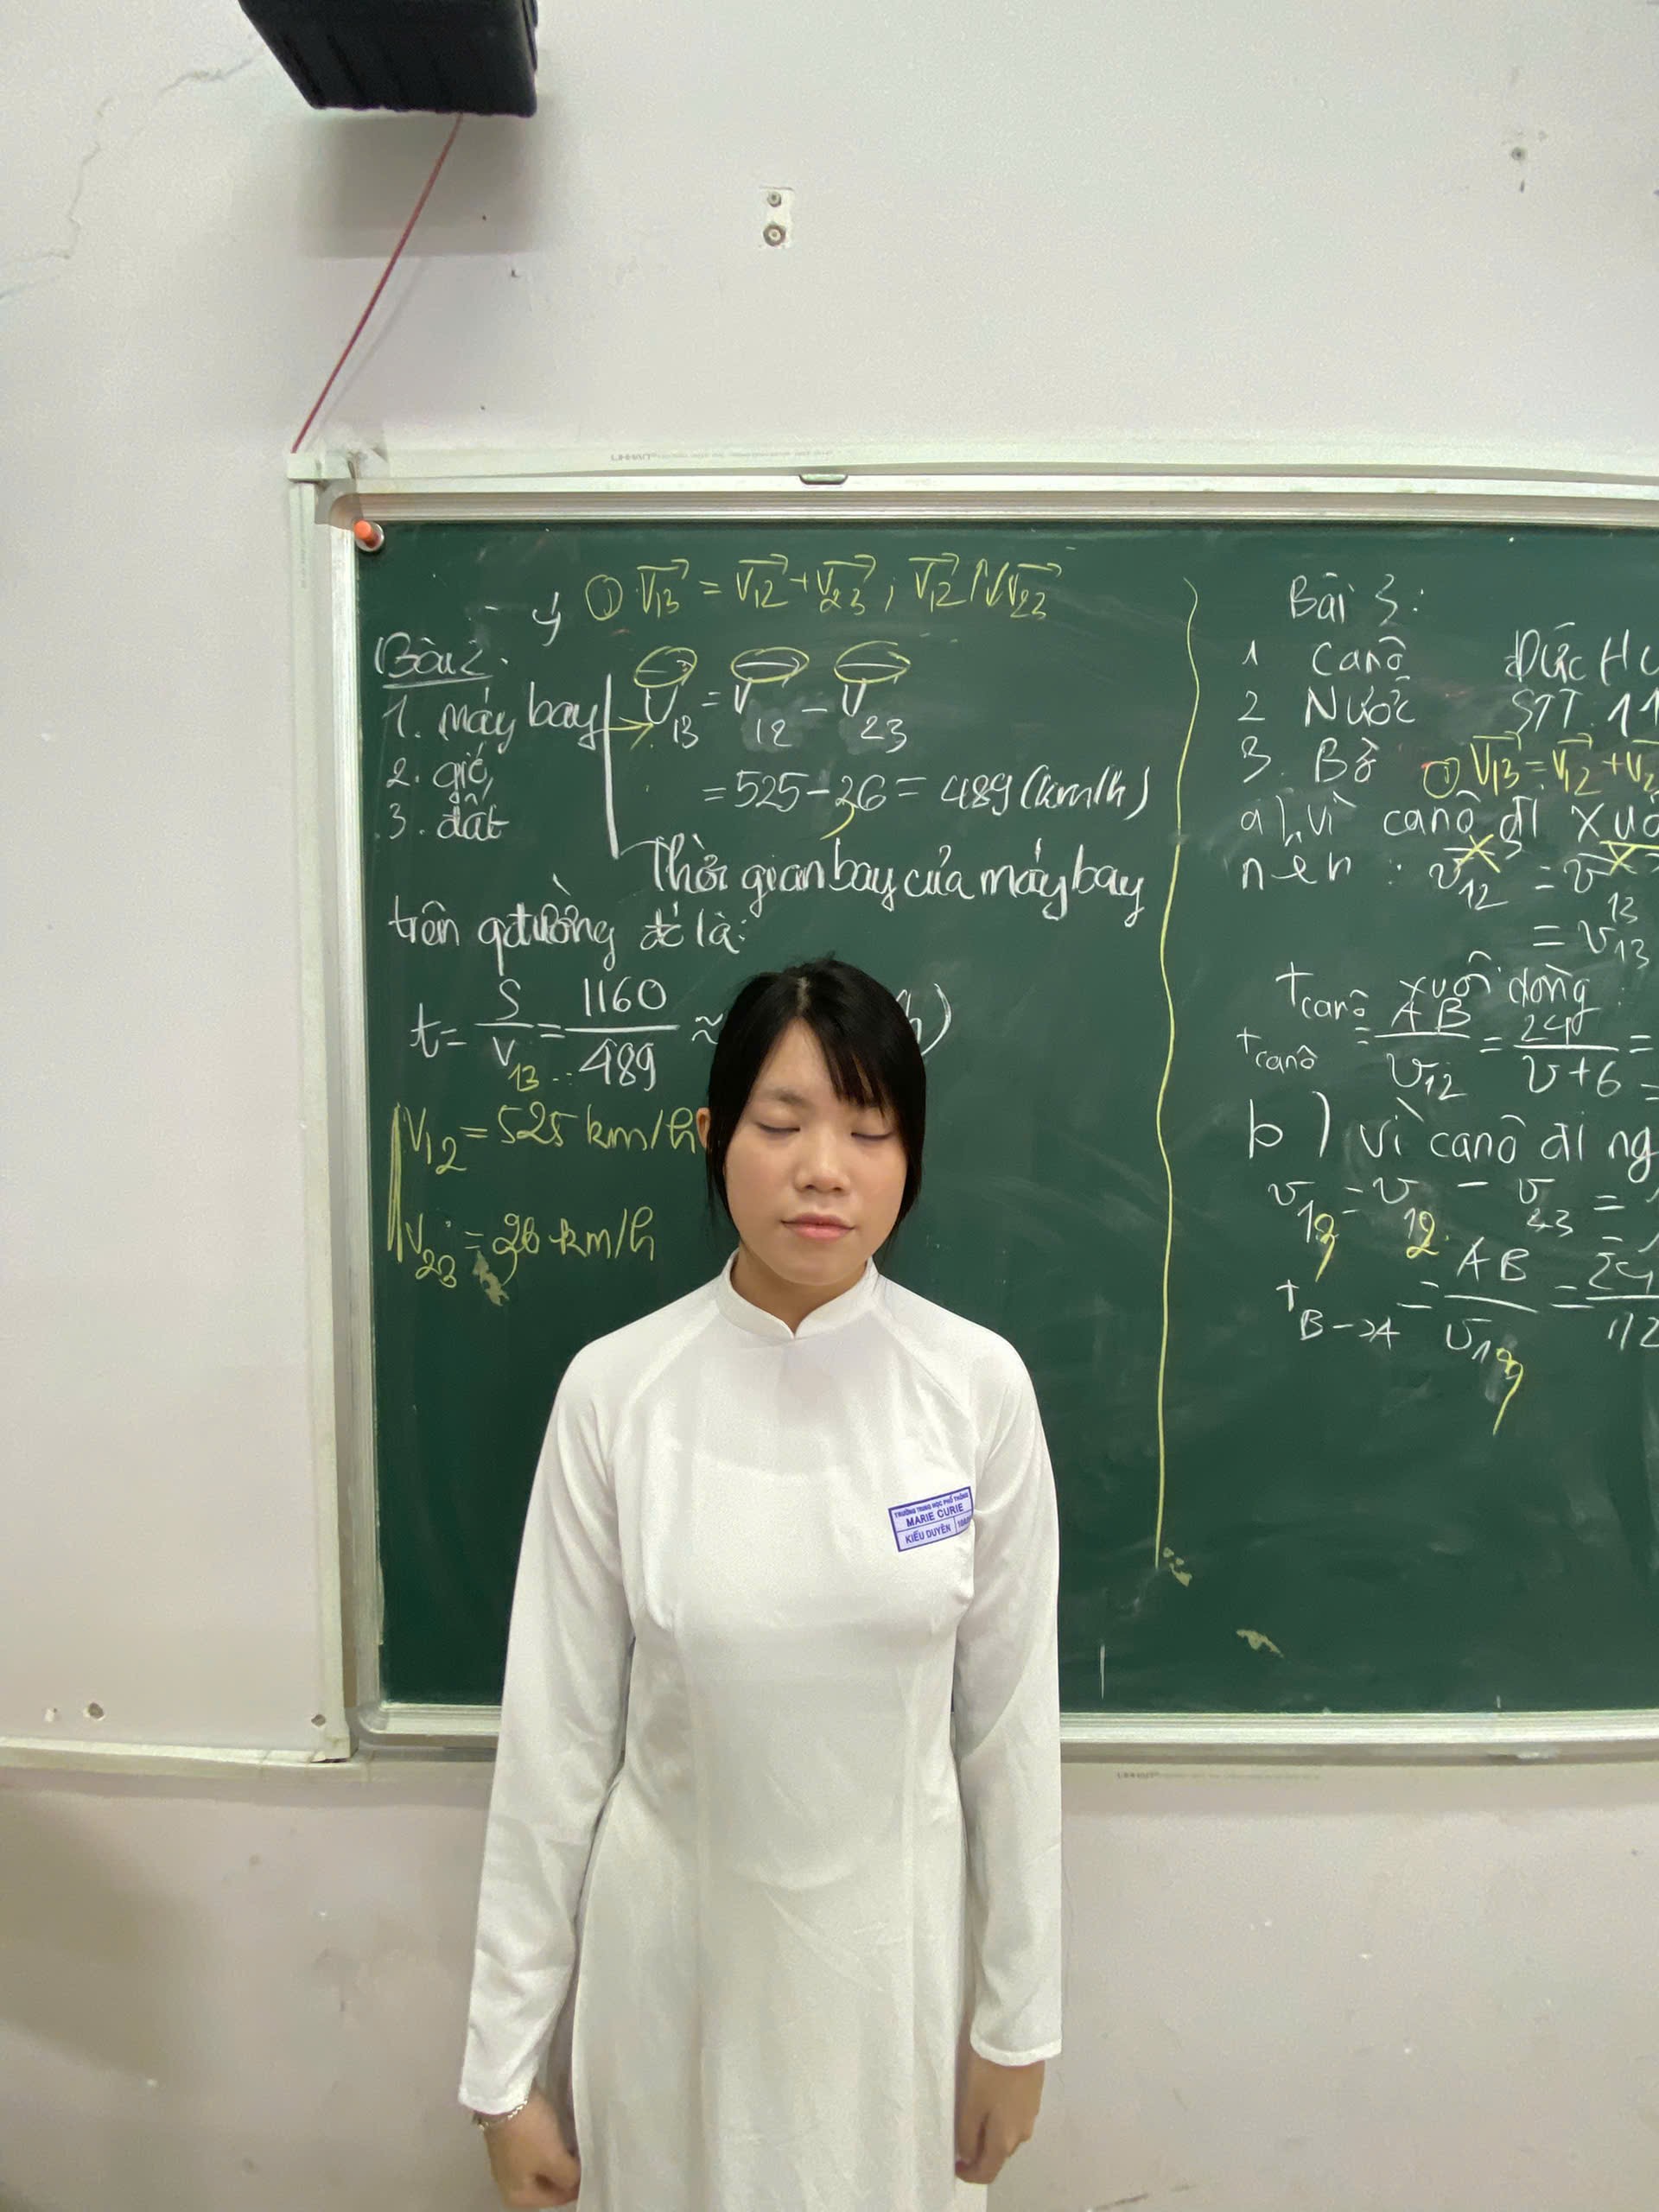 ① V13 = V12 + V23 ; V12 ↑↓ V23
Bài 2:
1. máy bay
2. gió
3. đất
V13 = V12 - V23
= 525 - 36 = 489 (km/h)
Thời gian bay của máy bay
trên qđường đó là:
t = S / V13 = 1160 / 489 ≈
V12 = 525 km/h
V23 = 36 km/h
Bài 3:
1 Canô
2 Nước
3. Bờ
Đức
STT 11
① V13 = V12 +
a) vì canô đi
nên : v12 = v13
= v13
t canô xuôi dòng
t canô = AB / v12 = 24 / v+6 =
b) vì canô đi
v13 = v12 - v23 =
t B→A = AB / v13 =
TRƯỜNG TRUNG HỌC PHỔ THÔNG
MARIE CURIE
KIỀU DUYÊN